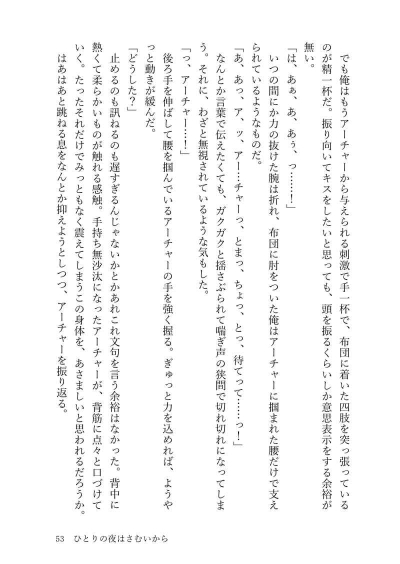 でも俺はもうアーチャーから与えられる刺激で手一杯で、布団に着いた四肢を突っ張っている
のが精一杯だ。振り向いてキスをしたいと思っても、頭を振るくらいしか意思表示をする余裕が
無い。
「は、あぁ、あ、あぅ、っ……！」
いつの間にか力の抜けた腕は折れ、布団に肘をついた俺はアーチャーに掴まれた腰だけで支え
られているようなものだ。
「あ、あっ、ア、ッ、アー…チャーっ、とまっ、ちょっ、とっ、待てって……っ！」
なんとか言葉で伝えたくても、ガクガクと揺さぶられて喘ぎ声の狭間で切れ切れになってしま
う。それに、わざと無視されているような気もした。
「っ、アーチャー…！」
後ろ手を伸ばして腰を掴んでいるアーチャーの手を強く握る。ぎゅっと力を込めれば、ようや
っと動きが緩んだ。
「どうした？」
止めるのも訊ねるのも遅すぎるんじゃないかとかあれこれ文句を言う余裕はなかった。背中に
熱くて柔らかいものが触れる感触。手持ち無沙汰になったアーチャーが、背筋に点々と口づけて
いく。たったそれだけでみっともなく震えてしまうこの身体を、あさましいと思われるだろうか。
はあはあと跳ねる息をなんとか抑えようとしつつ、アーチャーを振り返る。
53 ひとりの夜はさむいから